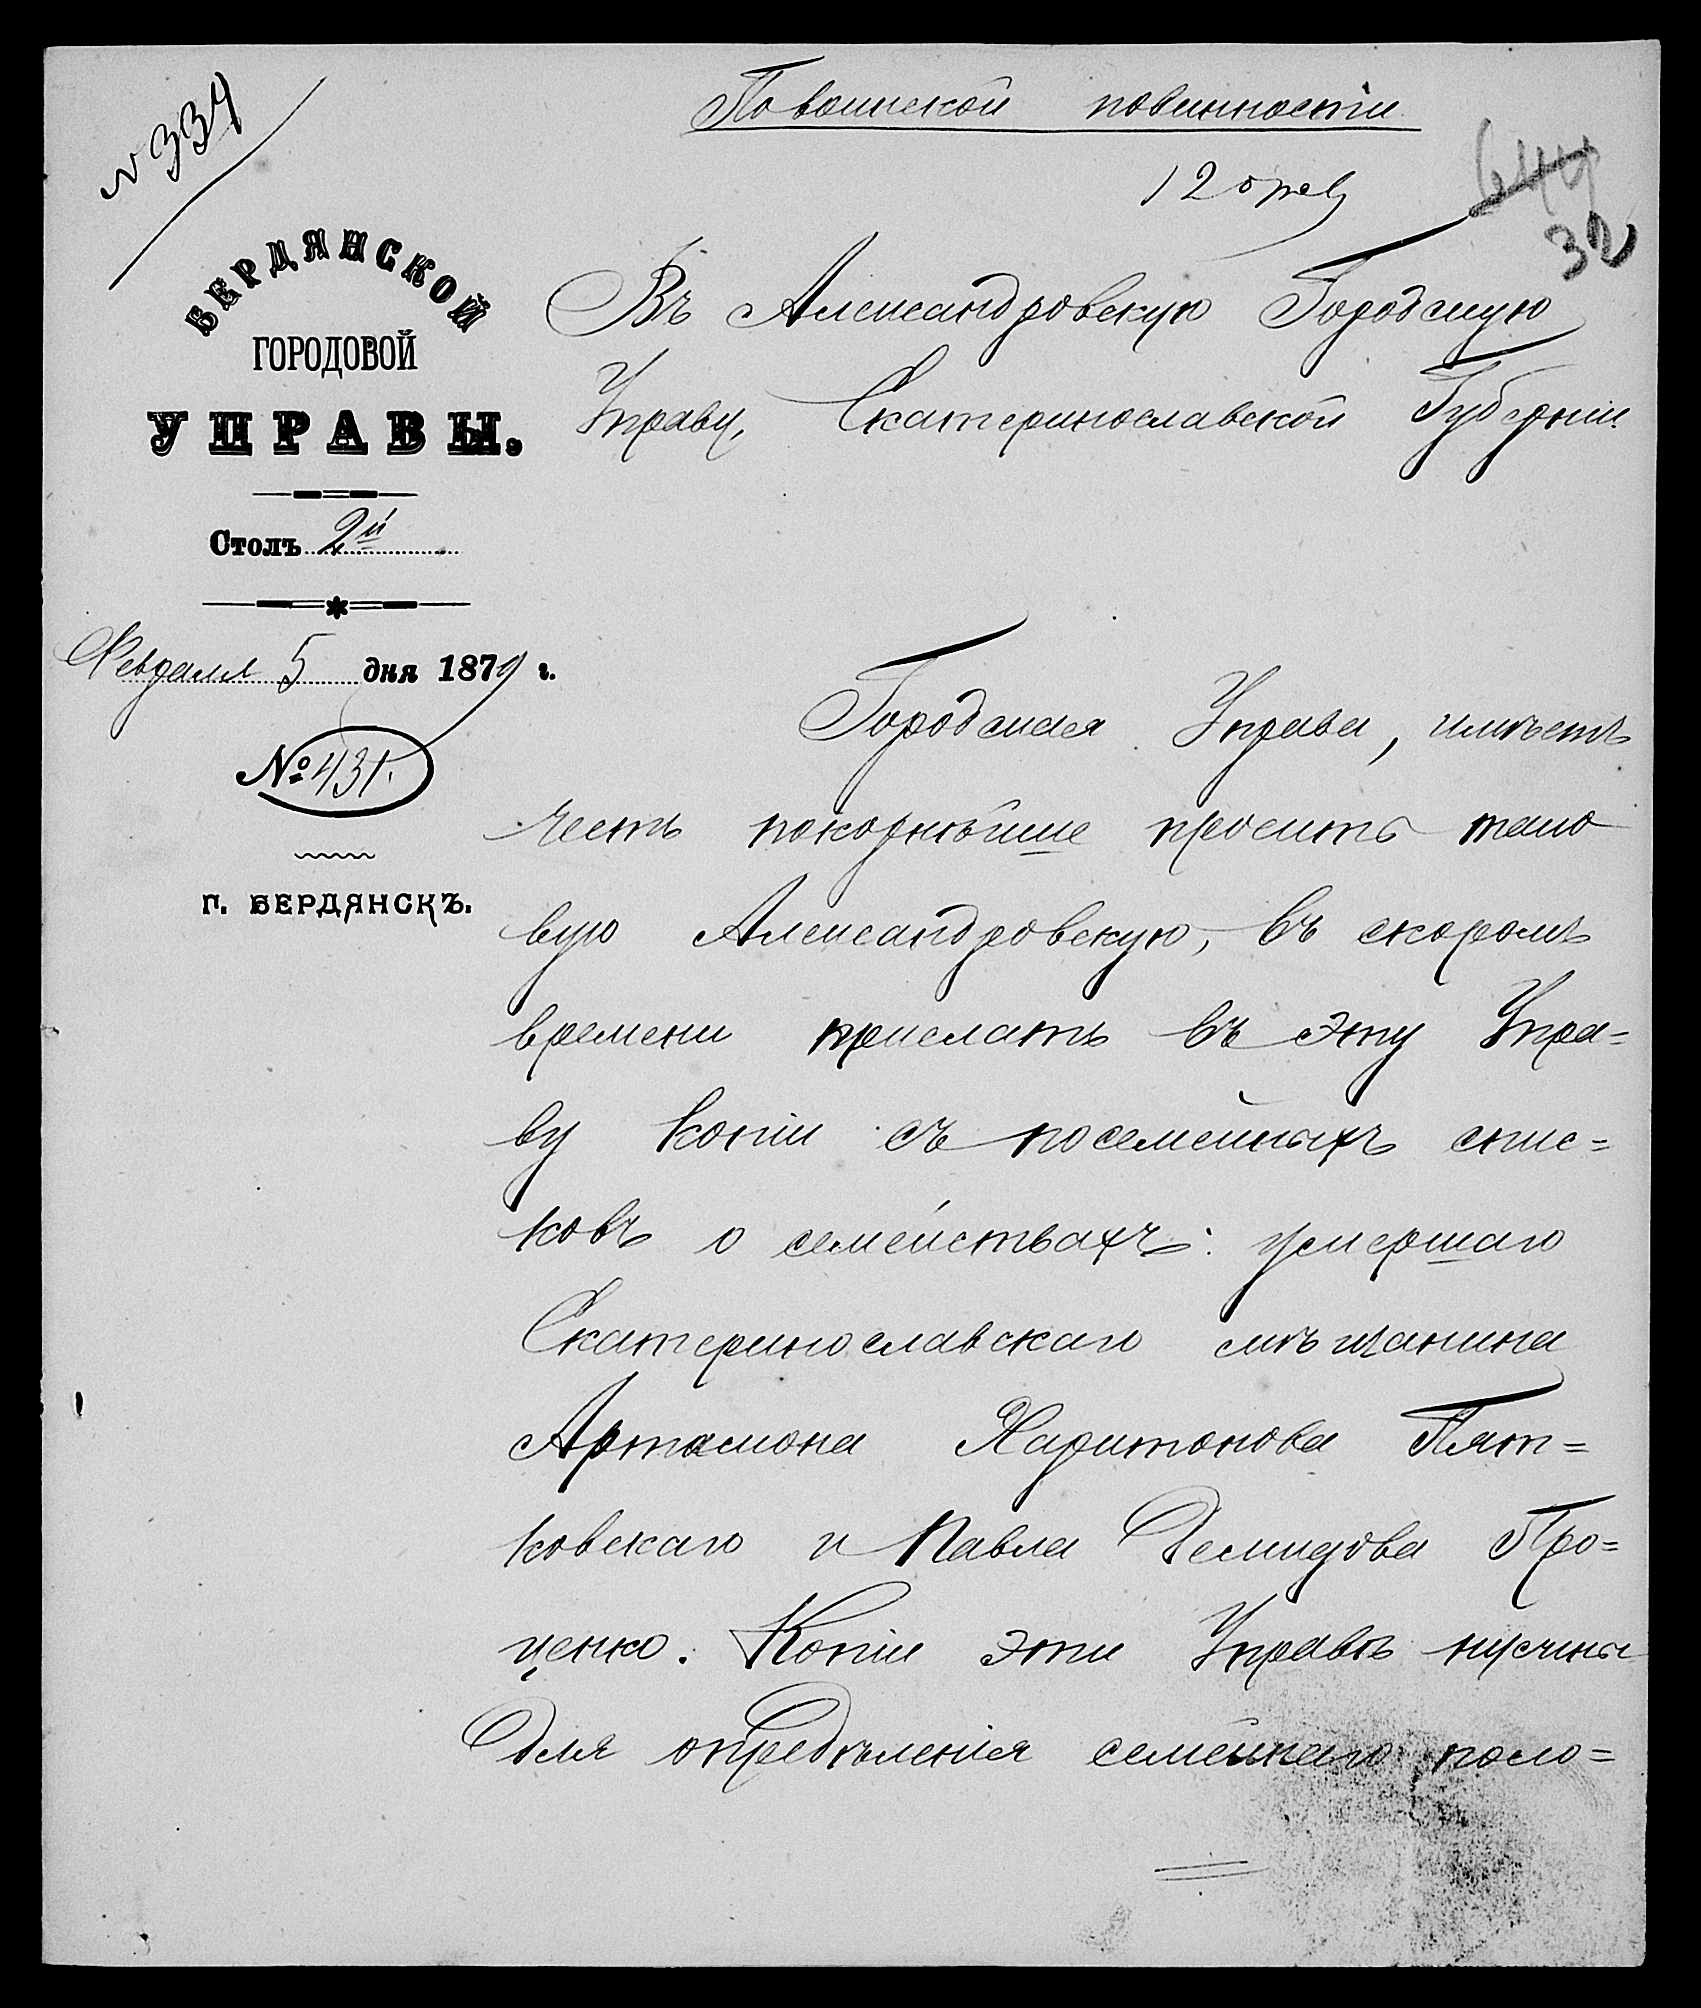 N 334
По воинской повинности
12 фев
644
32
БЕРДЯНСКОЙ
ГОРОДОВОЙ
УПРАВЫ.
Столъ 2й
Февраля 5 дня 1879 г.
№ 431.
Г. БЕРДЯНСКЪ.
Въ Александровскую Городскую
Управу, Екатеринославской Губерніи.
Городская Управа, имѣетъ
честь покорнѣйше просить тако
вую Александровскую, въ скоромъ
времени прислать въ эту Упра=
ву копіи съ посемейныхъ спис=
ковъ о семействахъ: умершаго
Екатеринославскаго мѣщанина
Артамона Харитонова Пят=
ковскаго и Павла Демидова Про=
ценко. Копіи эти Управѣ нужны
для опредѣленія семейнаго поло=